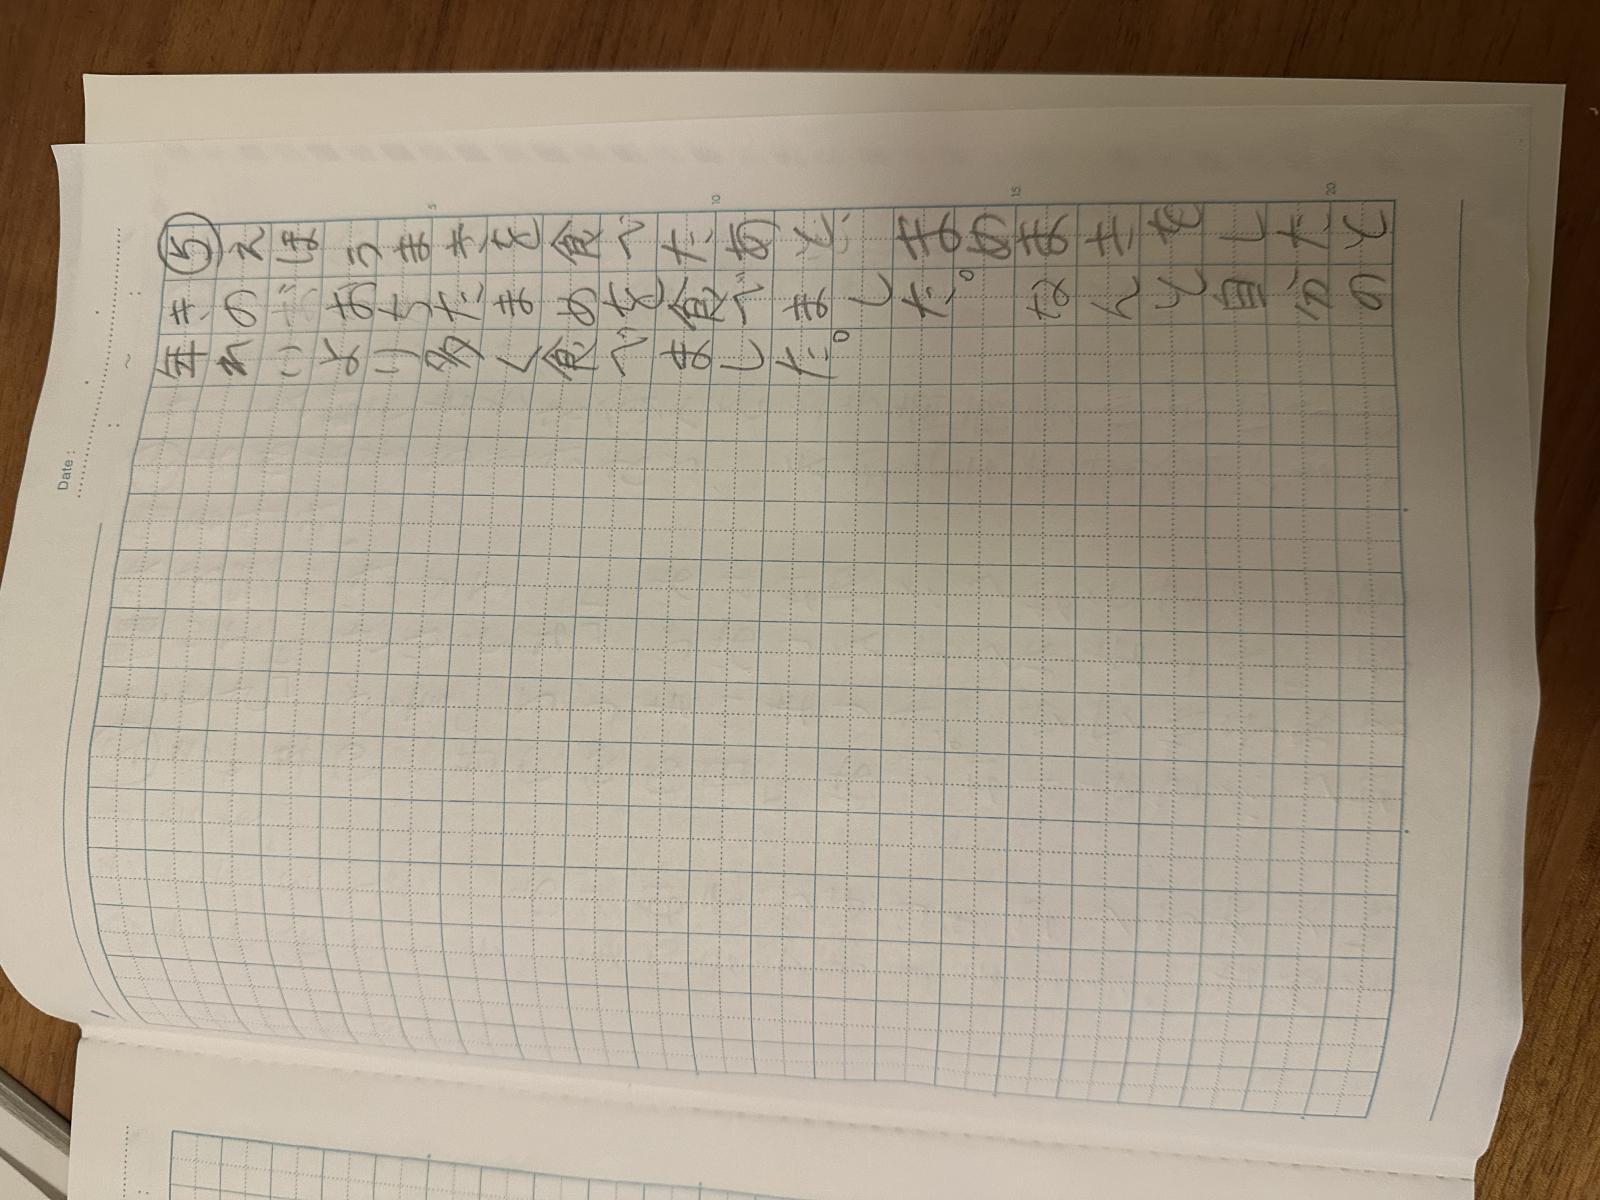 ⑤えほうまきを食べたあと、まめまきをしたと
きのおちたまめを食べました。なんと自分の
年れいより多く食べました。
Date:
5
10
15
20